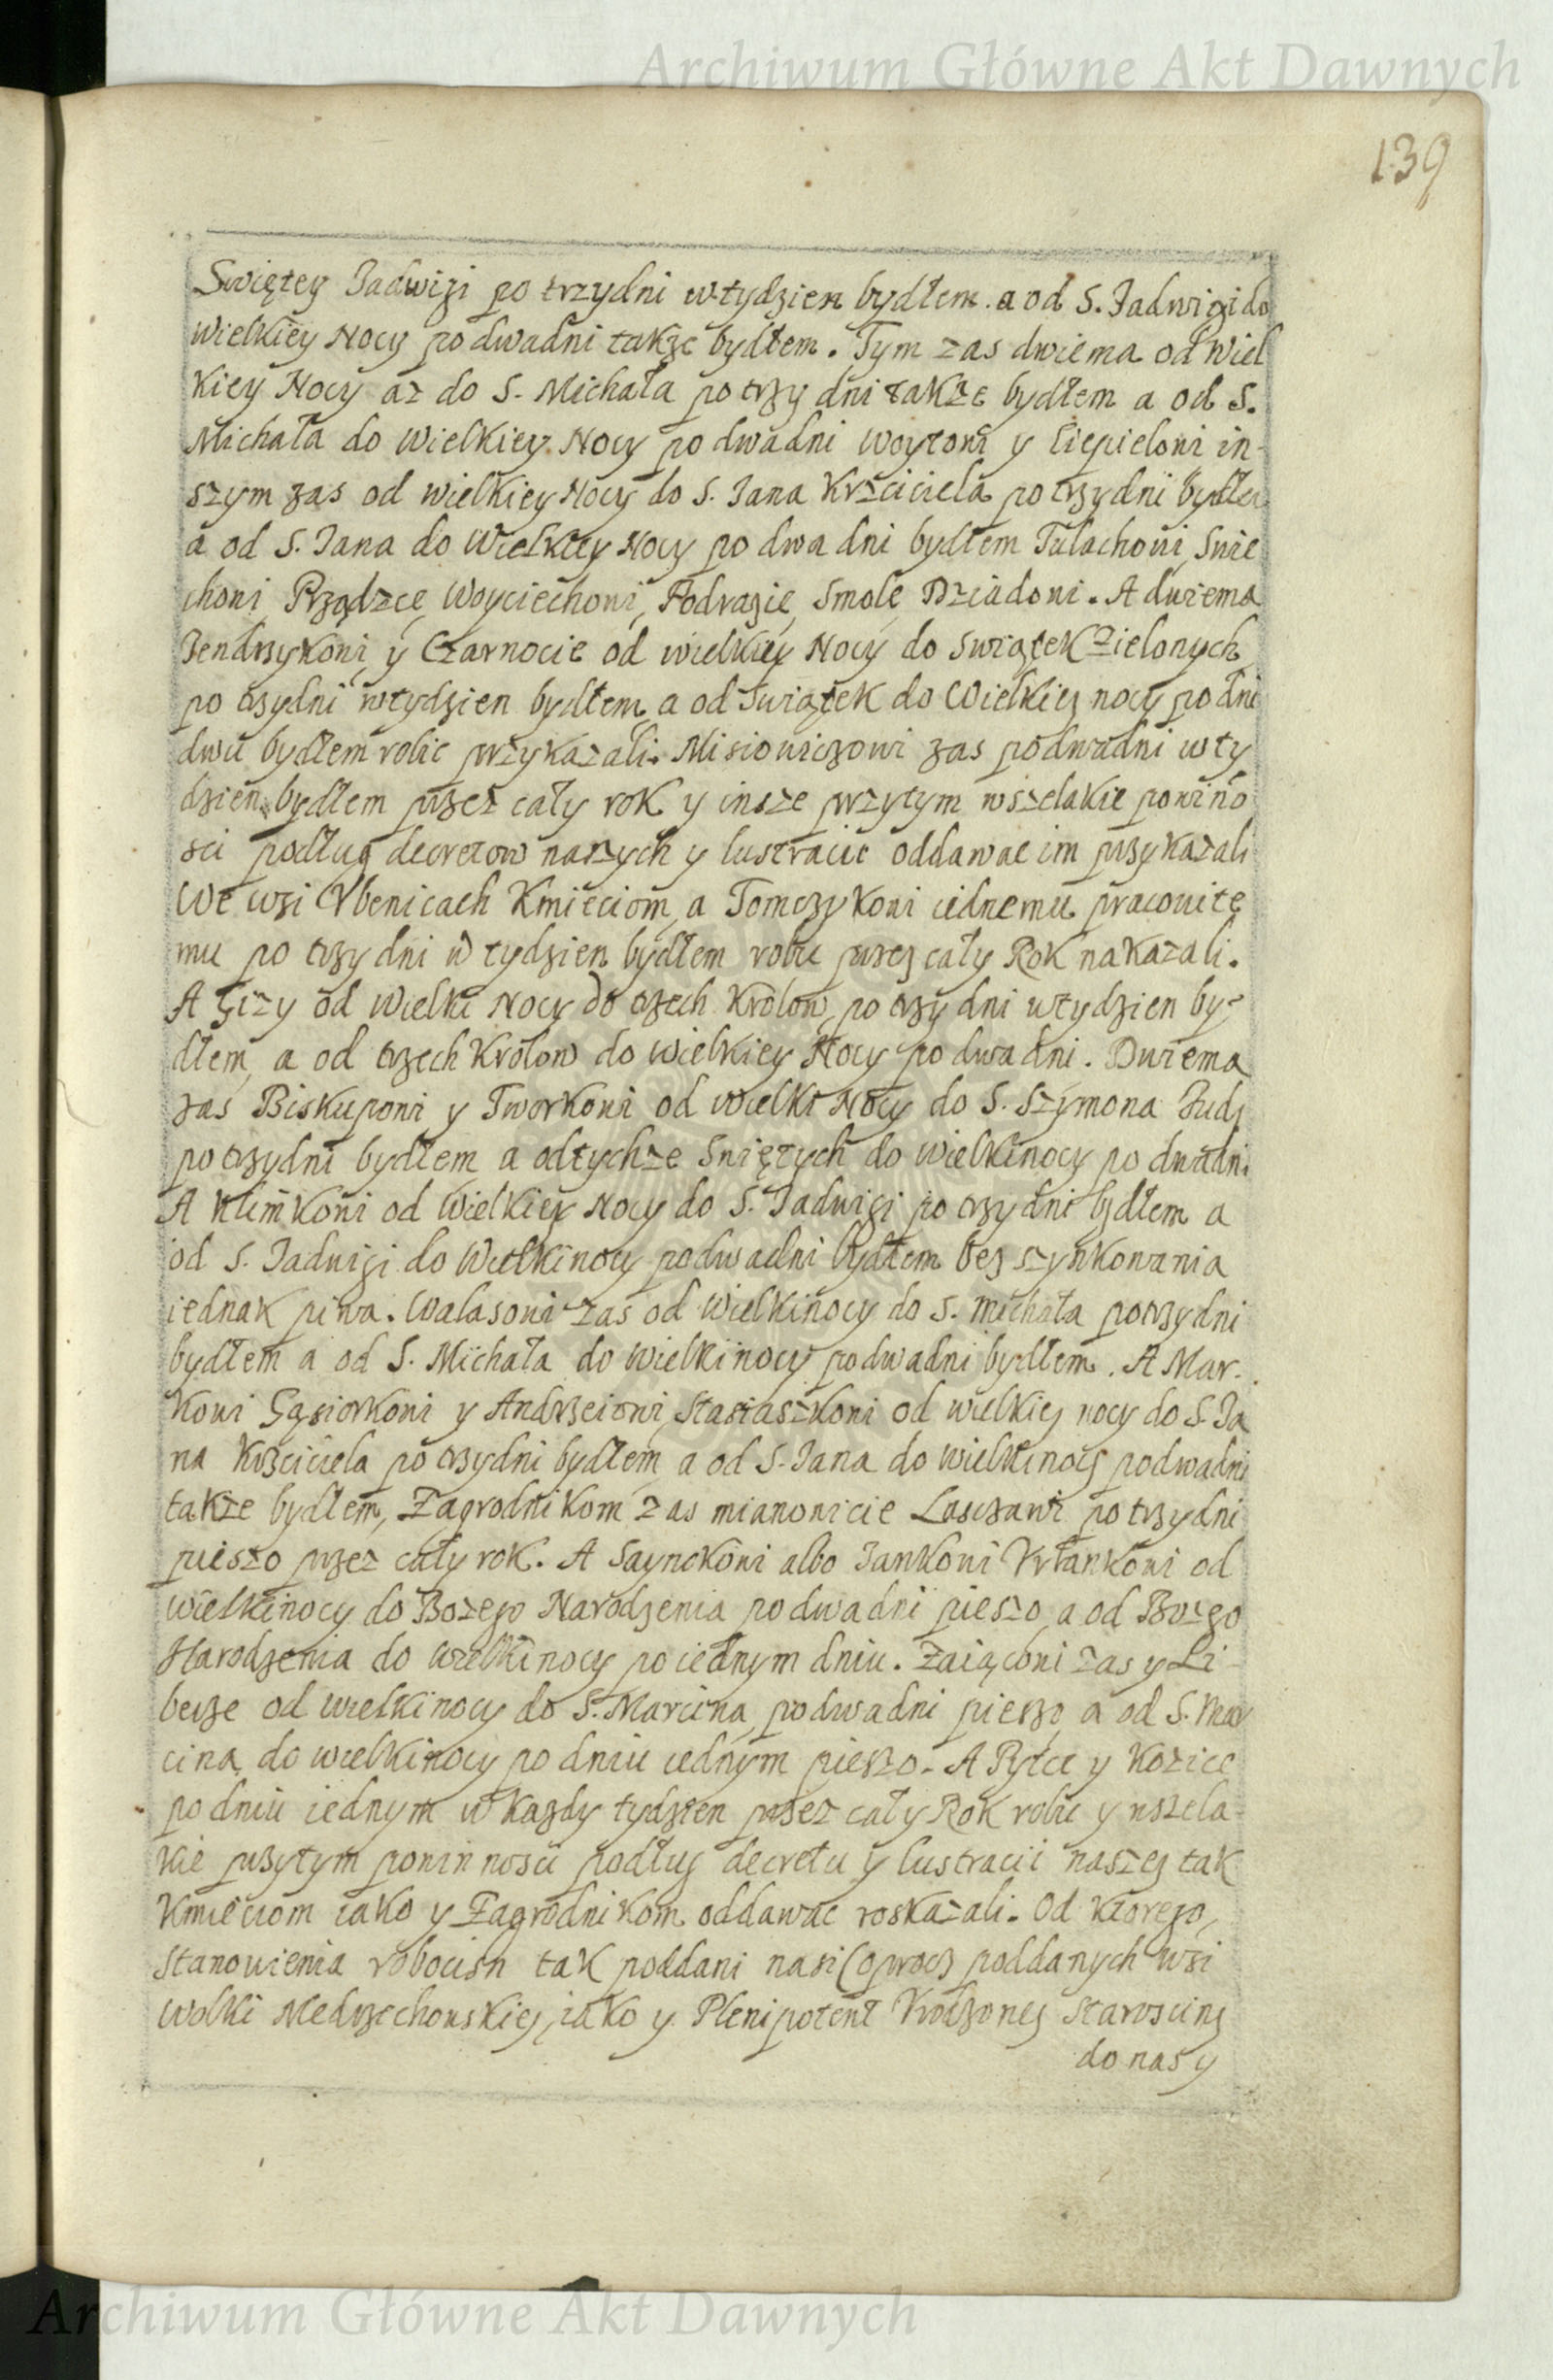 Archiwum Główne Akt Dawnych
139
Swiętey Jadwigi po trzydni wtydzien bydłem. a od S. Jadwigi do
wielkiey Nocy podwadni takze bydłem. Tym zas dwiema od Wiel
kiey Nocy az do S. Michała po trzy dni takze bydłem a od S.
Michała do Wielkiey Nocy podwadni Woytowi y Ciepielowi in-
szym zas od wielkiey Nocy do S. Jana Krzciciela po trzydni bydłem
a od S. Jana do Wielkiey Nocy po dwa dni bydłem Tulachowi, Swie
chowi Prządzce, Woyciechowi, Podrazie, Smole Dziadowi. A dwiema
Jendrzykowi y Czarnocie od wielkiey Nocy do Swiątek Zielonych
po trzydni wtydzien bydłem a od Swiątek do Wielkiey nocy po dni
dwu bydłem robic przykazali. Misiowiczowi zas podwadni w ty
dzien bydłem przez cały rok y insze przytym wszelakie powino
sci podług decretow naszych y lustraciie oddawac im przykazali
We wsi Vbenicach Kmieciom, a Tomczykowi iednemu pracowite
mu po trzy dni w tydzien bydłem robic przez cały Rok nakazali.
A Gizy od Wielki Nocy do trzech Krolow, po trzy dni wtydzien by-
dłem, a od trzech Krolow do wielkiey Nocy po dwa dni. Dwiema
zas Biskupowi y Tworkowi od wielki Nocy do S. Szymona Judy
po trzydni bydłem a odtychze Swiętych do wielkinocy po dwadni
A Klimkowi od Wielkiey Nocy do S. Jadwigi po trzy dni bydłem a
od S. Jadwigi do Wielkinocy podwadni bydłem bez szynkowania
iednak piwa. Walasowi zas od wielkinocy do S. Michała po trzydni
bydłem a od S. Michała do wielkinocy podwadni bydłem. A Mar-
kowi Gąsiorkowi y Andrzeiowi Stasiaszkowi od wielkiey nocy do S. Ja
na Krzciciela po trzydni bydłem a od S. Jana do wielkinocy podwadni
takze bydłem, Zagrodnikom zas mianowicie Lasczawi po trzydni
pieszo przez cały rok. A Saynokowi albo Jankowi Vrłankowi od
wielkinocy do Bozego Narodzenia podwadni pieszo, a od Bozego
Narodzenia do wielkinocy po iednym dniu. Zaiącowi zas y Li-
berze od wielkinocy do S. Marcina podwadni pieszo a od S. Mar
cina do wielkinocy po dniu iednym pieszo. A Pytce y Kozice
po dniu iednym w kazdy tydzien przez cały Rok robic y wszela-
kie przytym powinnosci podług decretu y lustracii naszey tak
Kmieciom iako y Zagrodnikom oddawac roskazali. Od ktorego
stanowienia robocizn tak poddani nasi (oprocz poddanych wsi
Wolki Medrzechowskiey, iako y Plenipotent Vrodzoney Starosciny
do nas y
Archiwum Główne Akt Dawnych